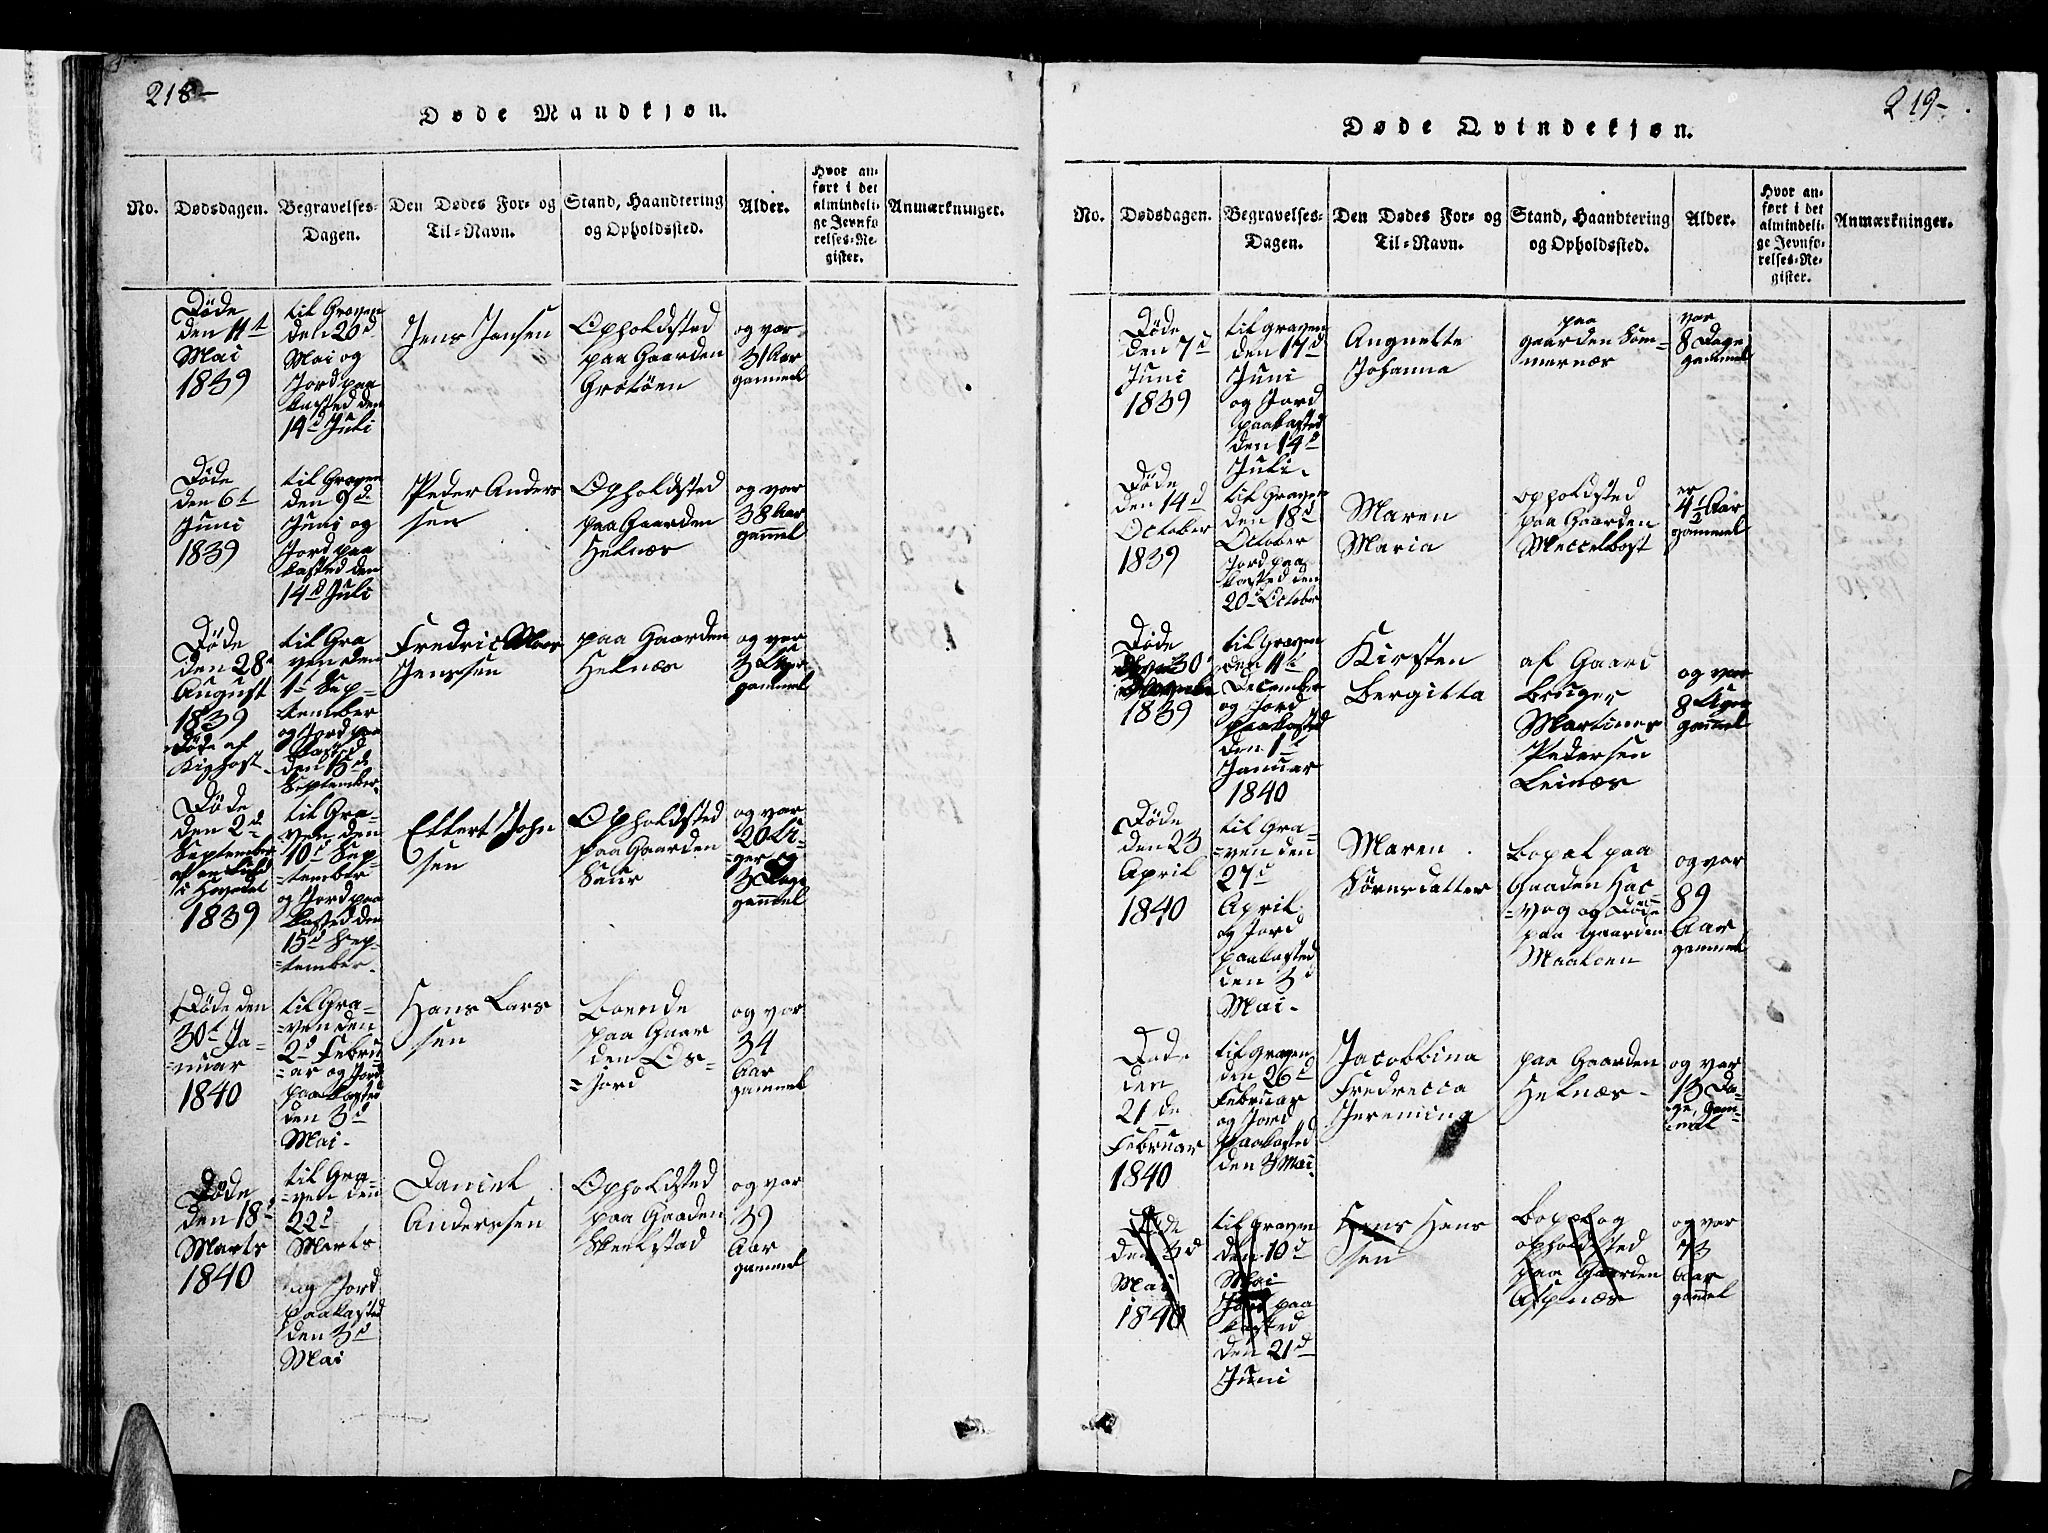 218-
Døde Mandkjøn.
No.
Dødsdagen.
Begravelses-
Dagen.
Den Dødes For- og
Til-Navn.
Stand, Haandtering
og Opholdssted.
Alder.
Hvor an-
ført i det
almindeli-
ge Jevnfø-
relses-Re-
gister.
Anmærkninger.
Døde
den 11t
Mai
1839
til Graven
den 20d
Mai og
Jord paa
kasted den
14d Juli
Jens Jensen
Opholdsted
paa Gaarden
Grøtøen
og var
31 Aar
gammel
Døde
den 6t
Juni
1839
til Graven
den 9de
Juni og
Jord paa
kasted den
14d Juli
Peder Anders
sen
Opholdsted
paa Gaarden
Helnæs
og var
38 Aar
gammel
Døde
den 28d
August
1839
Døde af
Kighost
til Gra
ven den
1t Sep-
tember
og Jord paa
kasted
den 15d
September
Fredric
Jenssen
paa Gaarden
Helnæs
og var
3 Uger
gammel
Døde
den 2d
September
1839
til Gra-
ven den
10d Sep-
tember
og Jord paa
kasted den
15d Sep-
tember.
Ellert John
sen
Opholdsted
paa Gaarden
Saur
og var
20 Ui-
ger og
3 Dage
gammel
Døde den
30t Ja-
nuar
1840
til Gra-
ven den
2d Febru
ar og Jord
paakasted
den 3d
Mai.
Hans Lars
sen
Boende
paa Gaar
den Øs-
jord
og var
34
Aar
gammel
Døde
den 18d
Marts
1840
til Gra-
ven den
22d
Marts
og Jord
paakasted
den 3d
Mai
Daniel
Anderssen
Opholdsted
paa Gaaden
Skeelstad
og var
39
Aar
gammel
219-
Døde Qvindekjøn.
No.
Dødsdagen.
Begravelses-
Dagen.
Den Dødes For- og
Til-Navn.
Stand, Haandtering
og Opholdssted.
Alder.
Hvor an-
ført i det
almindeli-
ge Jevnfø-
relses-Re-
gister.
Anmærkninger.
Døde
den 7d
Juni
1839
til graven
den 17d
Juni
og Jord
paakasted
den 14d
Juli.
Angnette
Johanna
paa
gaarden Som-
mernæs
var
8 Dage
gammel
Døde
den 14d
October
1839
til Graven
den 18d
October
Jord paa
kasted den
20d October
Maren
Maria
opholdsted
paa Gaarden
er
4 1/2 Aar
gammel
Døde
1839
til Graven
den 11te
December
og Jord
paakasted
den 1t
Januar
1840
Kirsten
Bergitta
af Gaard
bruger
Martinus
Pedersen
Leinæs
og var
8 Uger
gammel
Døde
den 23
April
1840
til Gra-
ven den
27d
April
og Jord
paakasted
den 3d
Mai.
Maren
Sørnsdatter
Bopæl paa
Gaaden
og Døde
paa Gaarden
Maaløen
og var
89
Aar
gammel
Døde
den
21de
Februar
1840
til graven
den 26d
Februar
og Jord
paakasted
den 3 Mai
Jacobbina
Fredrecca
Jereminna
paa Gaarden
Helnæs.
og var
13 Da-
ge, gam-
mel
Døde
den 3d
Mai
1840
til Graven
den 10d
Mai
Jord paa
kasted
den 21d
Juni
Hans Hans
sen
Bopæl og
opholdsted
paa Gaarden
Aspnæs
og var
73
Aar
gammel